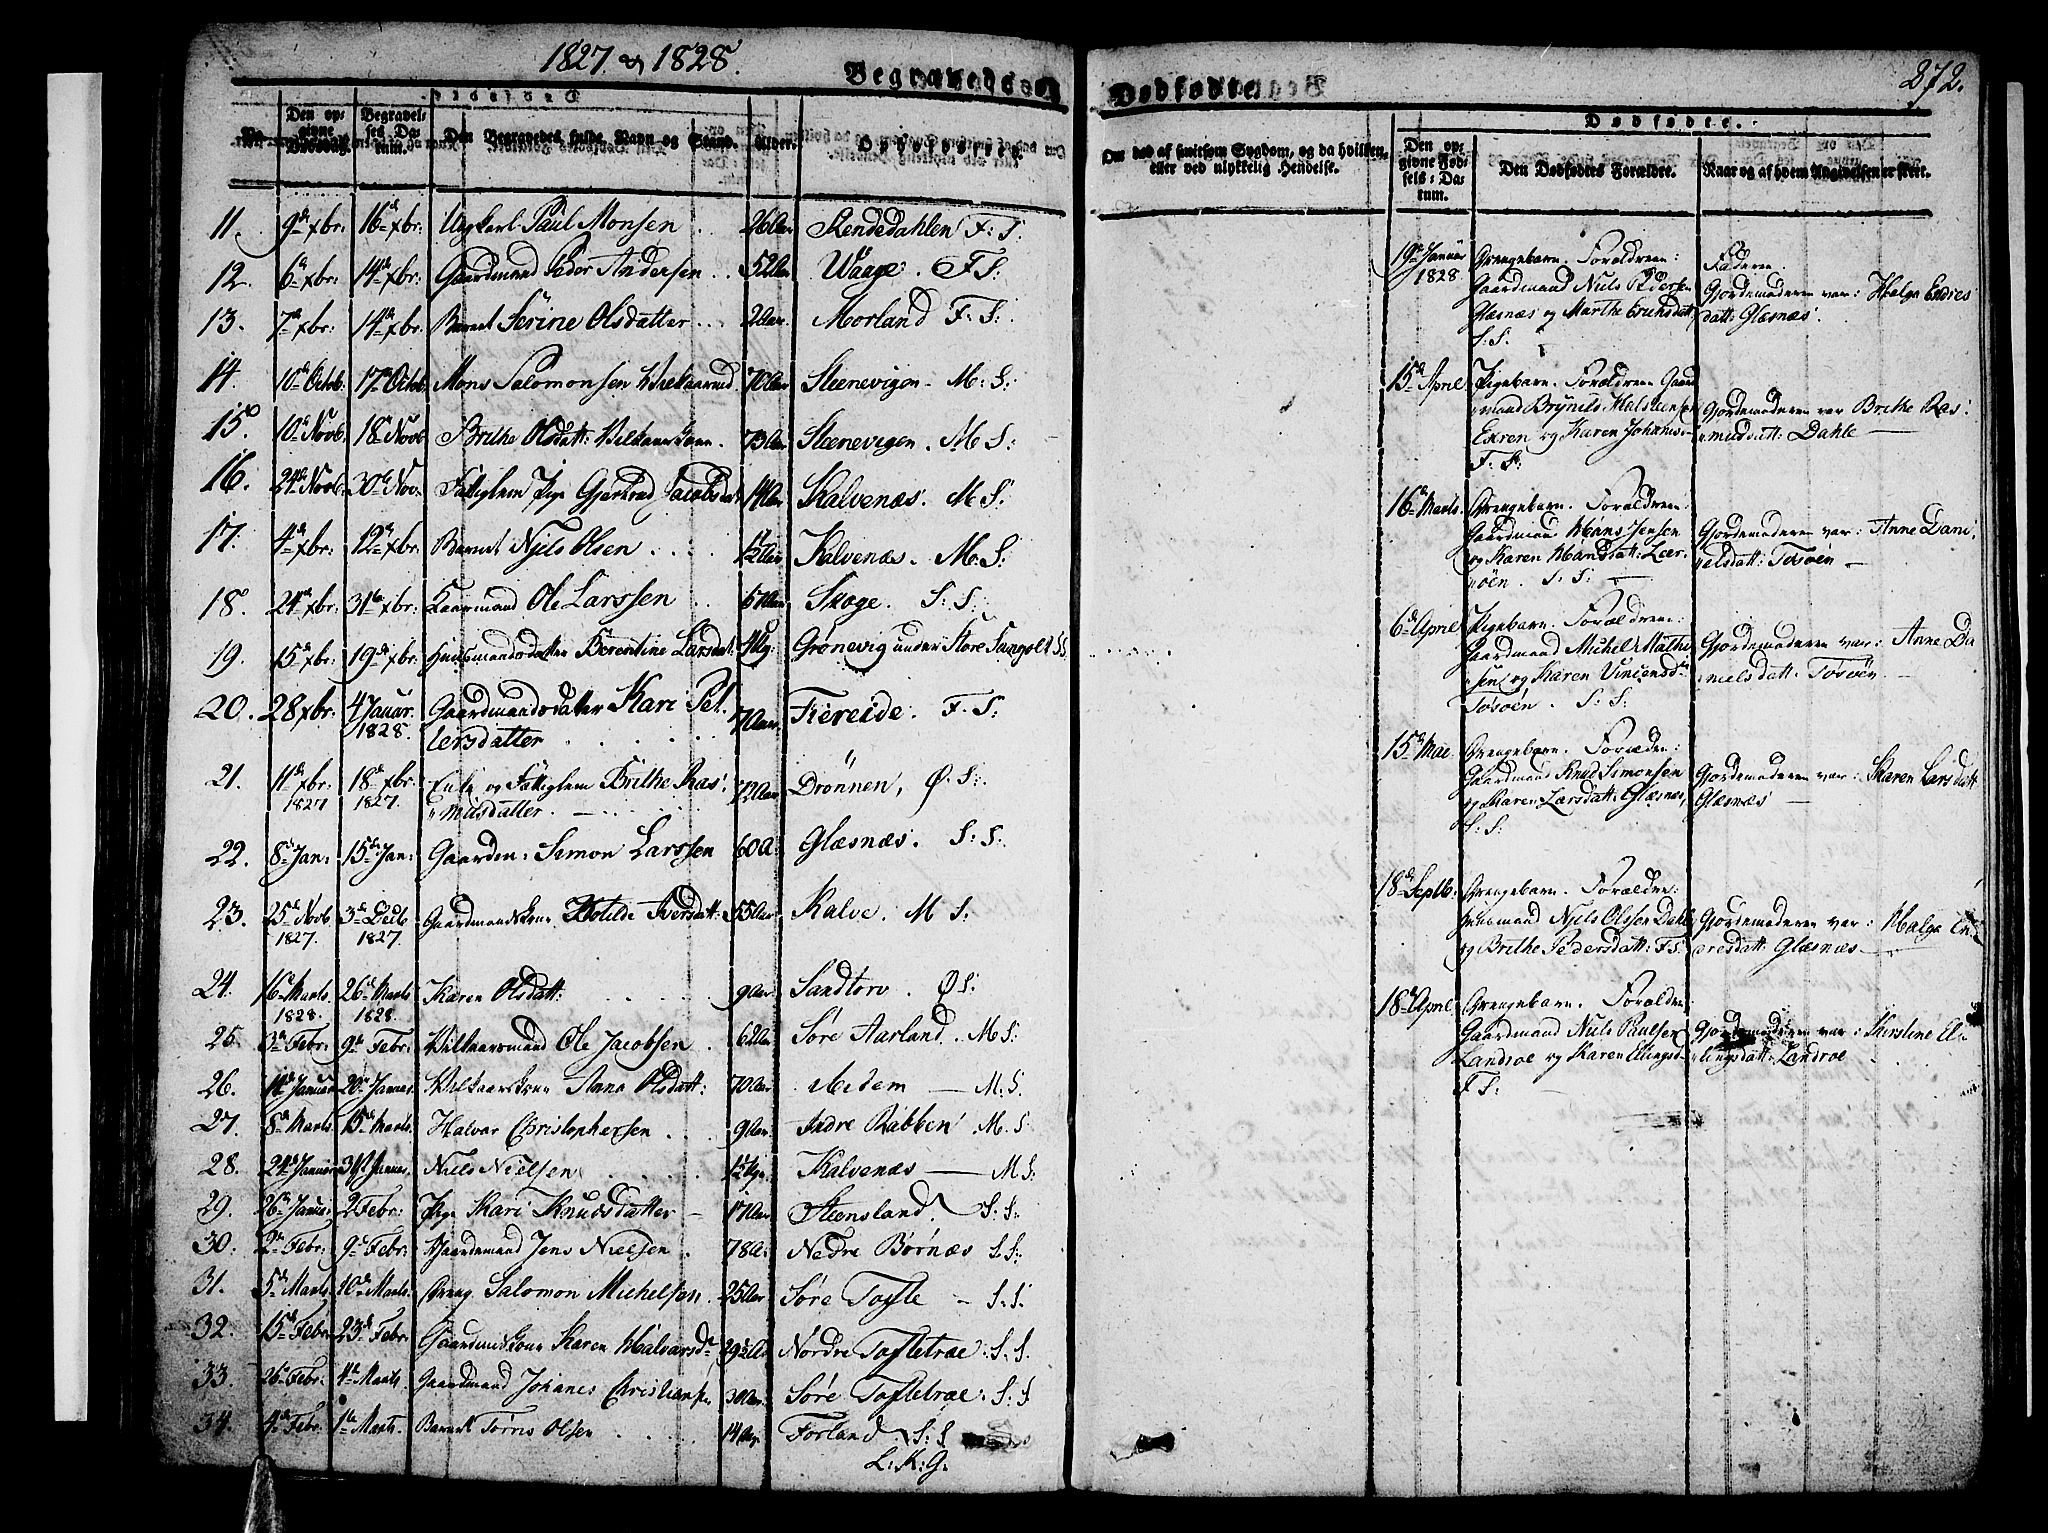 1827 og 1828.
Begravede og
Dødfødte
272.
No.
Den opgivne Dødsdag.
Begravelses Datum.
Den Begravedes fulde Navn og Stand.
Alder.
Opholdssted.
11. 9de xbr: 16de xbr: Ungkarl Paul Monsen 26 Aar Rendedahlen F: S:
12. 6te xbr: 14de xbr: Gaardmand Peder Andersen 52 Aar Waage. F S:
13. 7de xbr: 14de xbr: Barnet Serine Olsdatter 2 Aar. Morland F: S:
14. 10de Octob. 17de Octob. Mons Salomonsen Vilkaarmd 70 Aar Steenevigen - M: S:
15. 10de Novb. 18de Novb. Brithe Olsdatt: Vilkaarskone. 73 Aar Steenevigen. M S:
16. 24de Novb. 30te Nov. Fattiglem Pige Gjertrud Jacobsdt 14 Aar Kalvenæs. M S:
17. 4de xbr: 12te xbr: Barnet Njels Olsen 1½ Aar Kalvenæs. M. S:
18. 24de xbr: 31te xbr: Gaardmand Ole Larssen 67 Aar Skoge. S: S:
19. 15de xbr: 19de xbr: Huusmandsdatter Berentine Larsdt: Ug: Grønevig under Store Sangolt SS
20. 28 xbr: 4 Januar. 1828. Gaardmandsdatter Kari Pet-
tersdatter 7 Aar Fiereide. F. S:
21. 11te xbr: 1827 18de xbr: 1827. Enke og Fattiglem Brithe Ras:
musdatter. 72 Aar Drönnen, Ø: S:
22. 8de Jan: 15de Jan: Gaardm: Simon Larssen 60 A: Glæsnæs. S: S:
23. 25de Novb 1827. 3de Decb 1827. Gaardmandskone Botilde Iversdatt: 55 Aar Kalve. M S.
24. 16de Marts 1828. 26de Marts 1828. Karen Olsdatt: 9 Aar. Sandtorv. Ø S:
25. 3de Febr: 9de Febr: Vilkaarsmand Ole Jacobsen 62 Aar Søre Aarland. M S:
26. 16de Januar 20de Januar Vilkaarskone Anna Olsdatt: 70 Aar Medem - M: S.
27. 8de Marts. 15de Marts. Halvor Christophersen 9 Aar. Indre Rabben. M: S
28. 24de Januar 31te Januar. Niels Nielsen Kalvenæs - M S:
29. 26de Januar 2 Febr: Pige Kari Knudsdatter 17 Aar Steensland. S: S:
30. 2de Febr: 9de Febr: Gaardmand Jens Nielsen 78 A: Nedre Børnæs S S:
31. 5te Marts. 10de Marts. Dreng Salomon Michelsen 25 Søre Tofte - S: S.
32. 15de Febr: 23de Febr: Gaardmandskone Karen Halvorsdr 29½ Aar Nordre Tofletræ: S: S.
33. 26de Febr: 4de Marts. Gaardmand Johanes Christiansen 30 Aar. Søre Tofletræ: S: S
34. 4de Febr: 1te Marts. Barnet Tørris Olsen Forland. S: S
L: K: G:
Om død af smitsom Sygdom, og da hvilken,
eller ved ulykkelig Hendelse.
Dødfødte.
Den opgivne Fødsels-Datum.
Den Dødfødtes Forældre.
Naar og af hvem Angivelsen er skeet.
19de Januar 1828
Drengebarn. Forældrene:
Gaardmand Niels Pedersen
Glæsnæs og Marthe Erichsdatt:
S: S:
Faderen.
Gjordemoderen var: Helga Endres
datt: Glæsnæs.
15de April
Pigebarn. Forældrene Gaard
mand Brynild Halsteensen
Exren og Karen Johannsd
F: S:
Gjordemoderen var Brithe Ras:
musdatt: Dahle -
16de Marts.
Drengebarn. Forældrene:
Gaardmand Hans Jensen
og Karen Hansdatt: Leer-
øen. S: S: -
Gjordemoderen var: Anne Dani
elsdatt: Tosøen -
6te April
Pigebarn. Forældrene:
Gaardmand Michel Mathi
sen og Karen Vincensdr
Tosøen. S: S:
Gjordemoderen var: Anne Da
nielsdatt: Tosøen -
15de Mai
Drengebarn. Forælden:
Gaardmand Knud Simonsen
og Karen Larsdatt: Glæsnæs,
S: S:
Gjordemoderen var: Karen Larsdatt
Glæsnæs -
18de Septb:
Drengebarn. Forælder:
Huusmand Njels Olssen Dahle
og Brithe Pedersdatt: F: S:
Gjordemoderen var: Halga En-
dresdatt Glæsnæs -
18de April
Drengebarn. Forælder:
Gaardmand Niels Paulsen
Landroe og Karen Ellingsd-
F S:
Gjordemoderen var: Kirstine El-
lingsdatt: Landroe